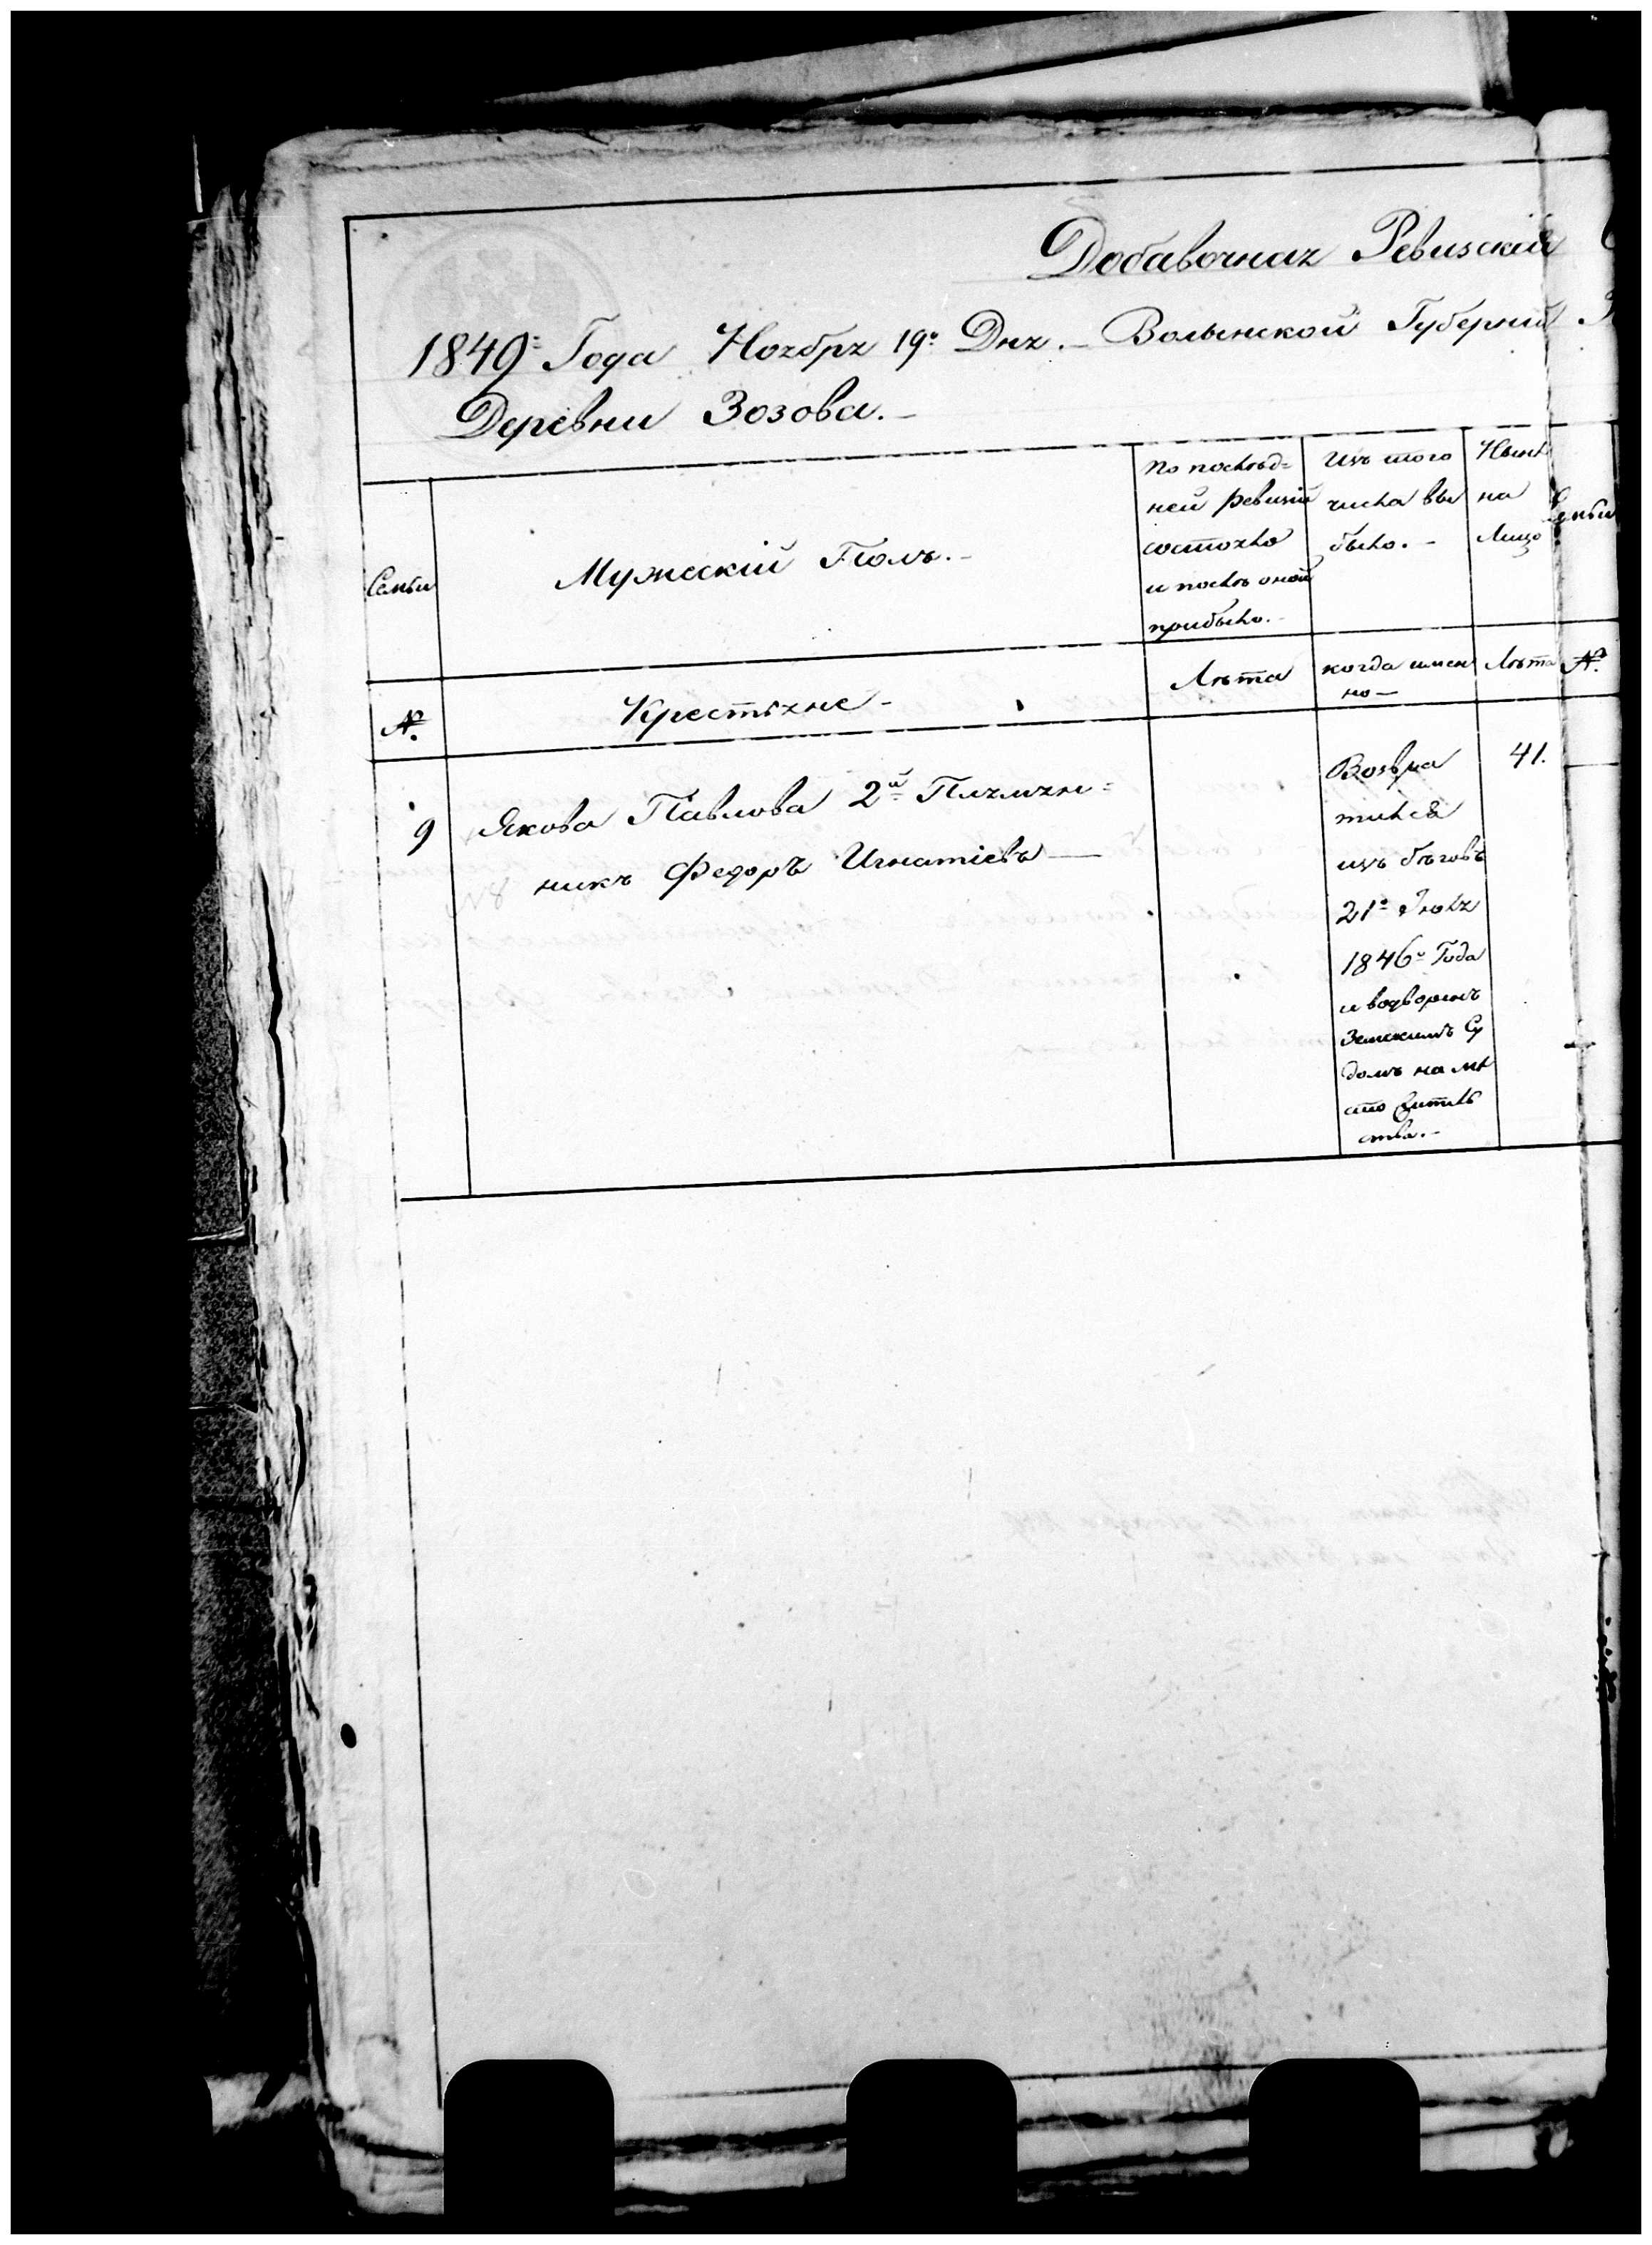 Добавочная Ревизскія
1849го Года Ноября 19го Дня. — Волынской Губерніи
Деревни Зозова. —
Семьи
Мужескій Полъ. —
По послѣд=
ней ревизіи
состояло
и послѣ оной
прибыло. —
Изъ того
числа вы
было. —
Нынѣ
на
Лицо
Семьи
№.
Крестьяне —
Лѣта
когда имен
но —
Лѣта
№.
9
Якова Павлова 2й Племян=
никъ Федоръ Игнатіевъ —
Возвра
тился
изъ бѣговъ
21го Іюля
1846го Года
и водворенъ
Земскимъ Су
домъ на мѣ
сто житель
ства. —
41.